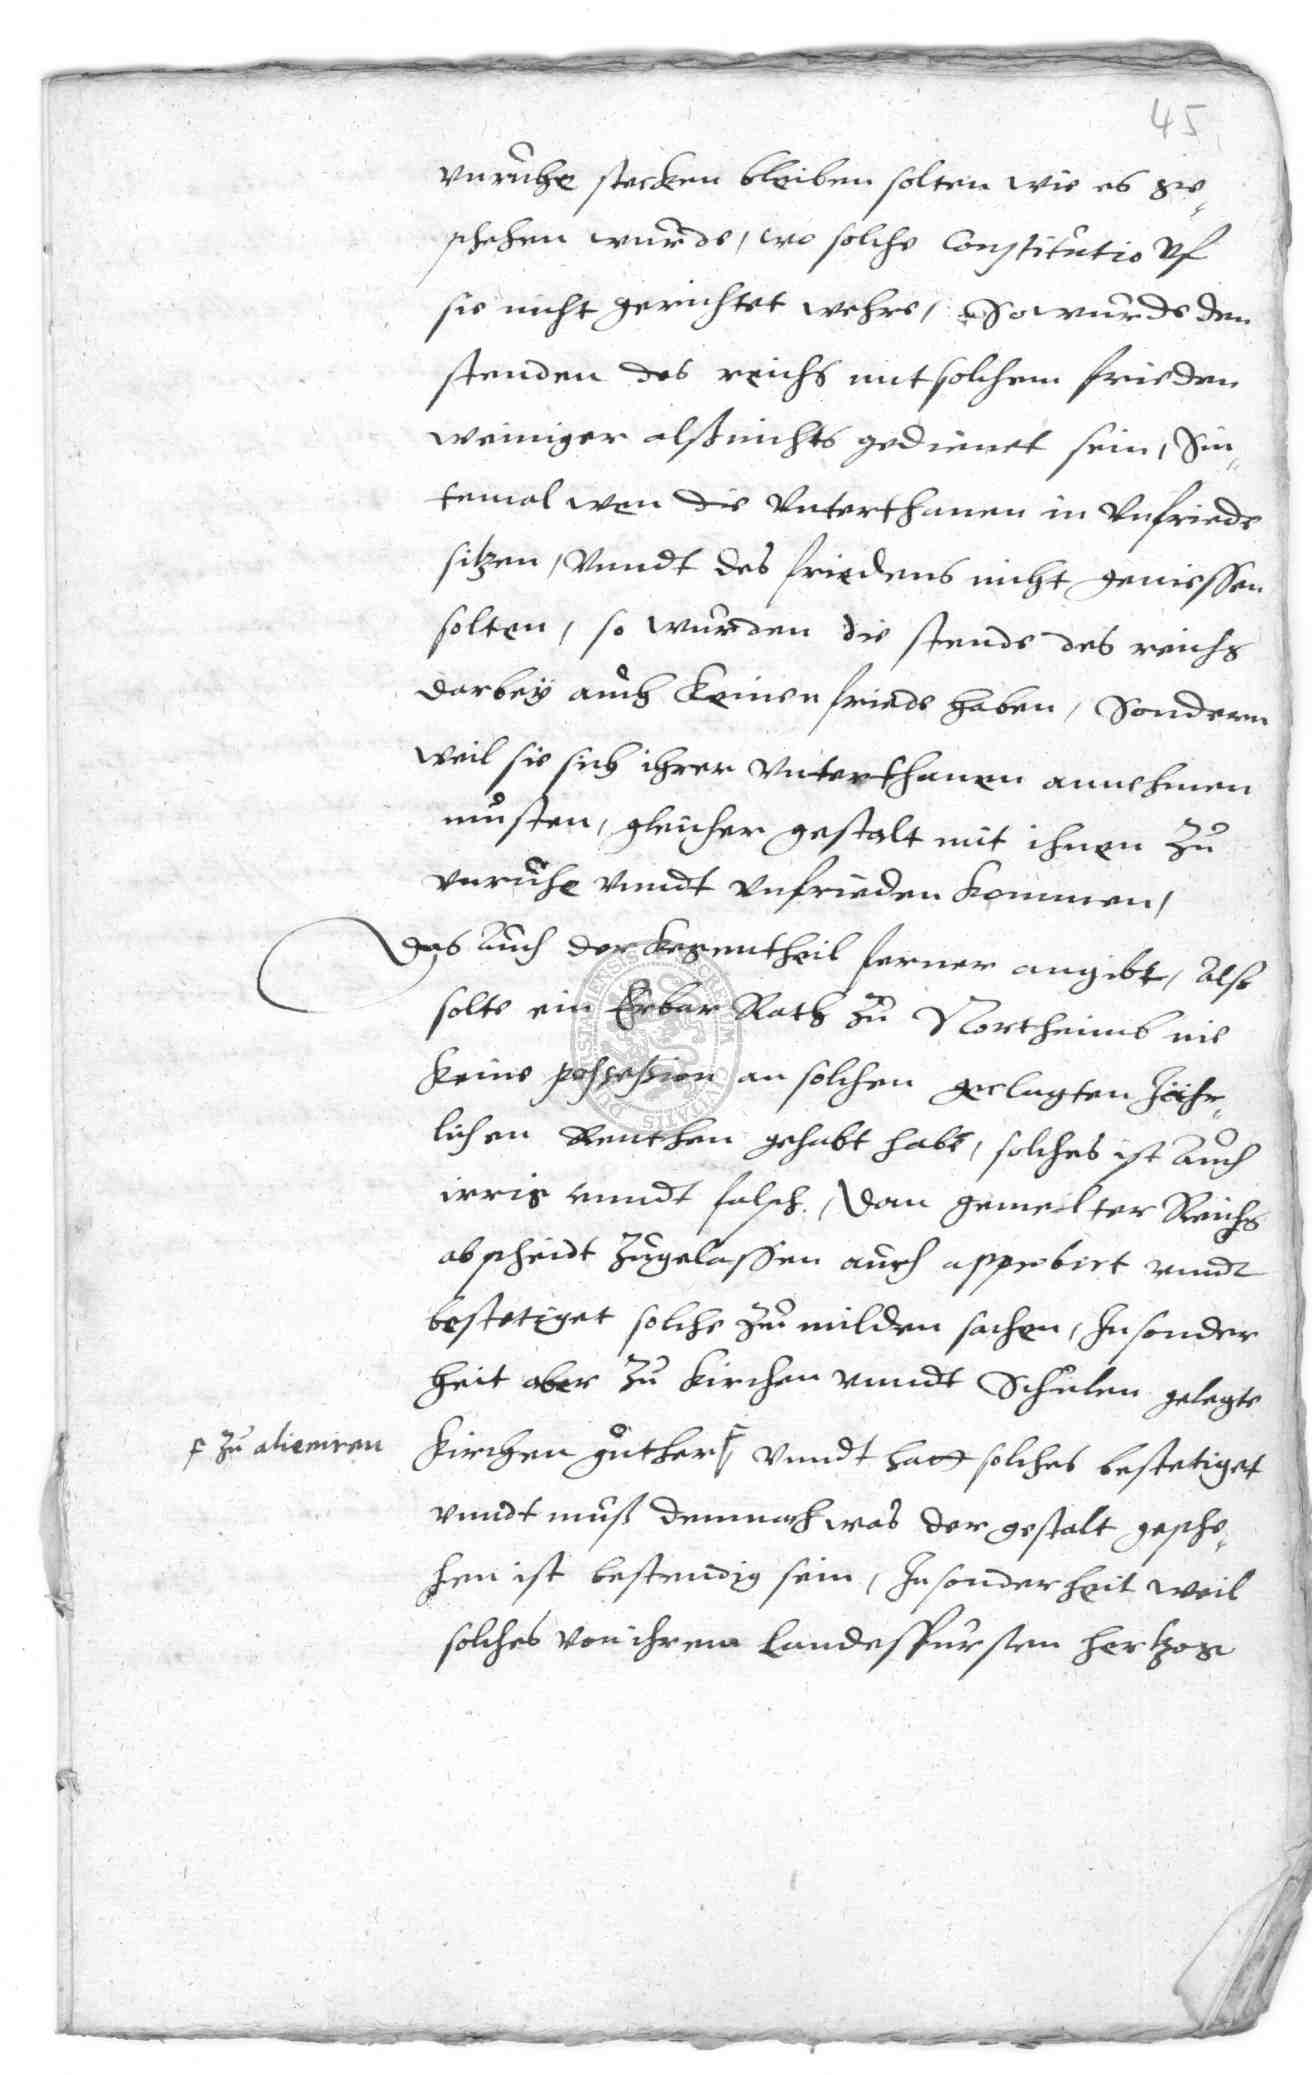 45
vnruhe stecken bleiben solten wie es ge„
schehen wurde, wo solche Constitutio vf
sie nicht gerichtet wehre, So wurde den
stenden des reichs mit solchem frieden
weiniger alß nichts gedienet sein, Sin„
temal wen die Vnterthanen in Vnfriede
sitzen, Vnndt des friedens nicht geniessen
solten, so wurden die stende des reichs
darbeÿ auch keinen friede haben, Sondern
weil sie sich ihrer Vnterthanen annehmen
musten, gleicher gestalt mit ihnen zu
vnruhe vnndt vnfrieden kommen,
Das Auch der kegentheil ferner angibt, Als
solte ein Erbar Rath zu Northeimb nie
keine possession an solchen geclagten Jähr„
lichen Renthen gehabt habe, solches ist Auch
irrig vnndt falsch, Dan gemelter Reichs
abscheidt zugelassen auch approbirt vnndt
bestetiget solche zu milden sachen, Insonder
heit aber zu Kirchen vnndt Schulen gelegte
Kirchen guther Vnndt hatt solches bestetiget
zu alieniren
vnndt muß demnach was der gestalt gesche„
hen ist bestendig sein, Insonderheit weil
solches von ihrem Landesfursten Hertzog